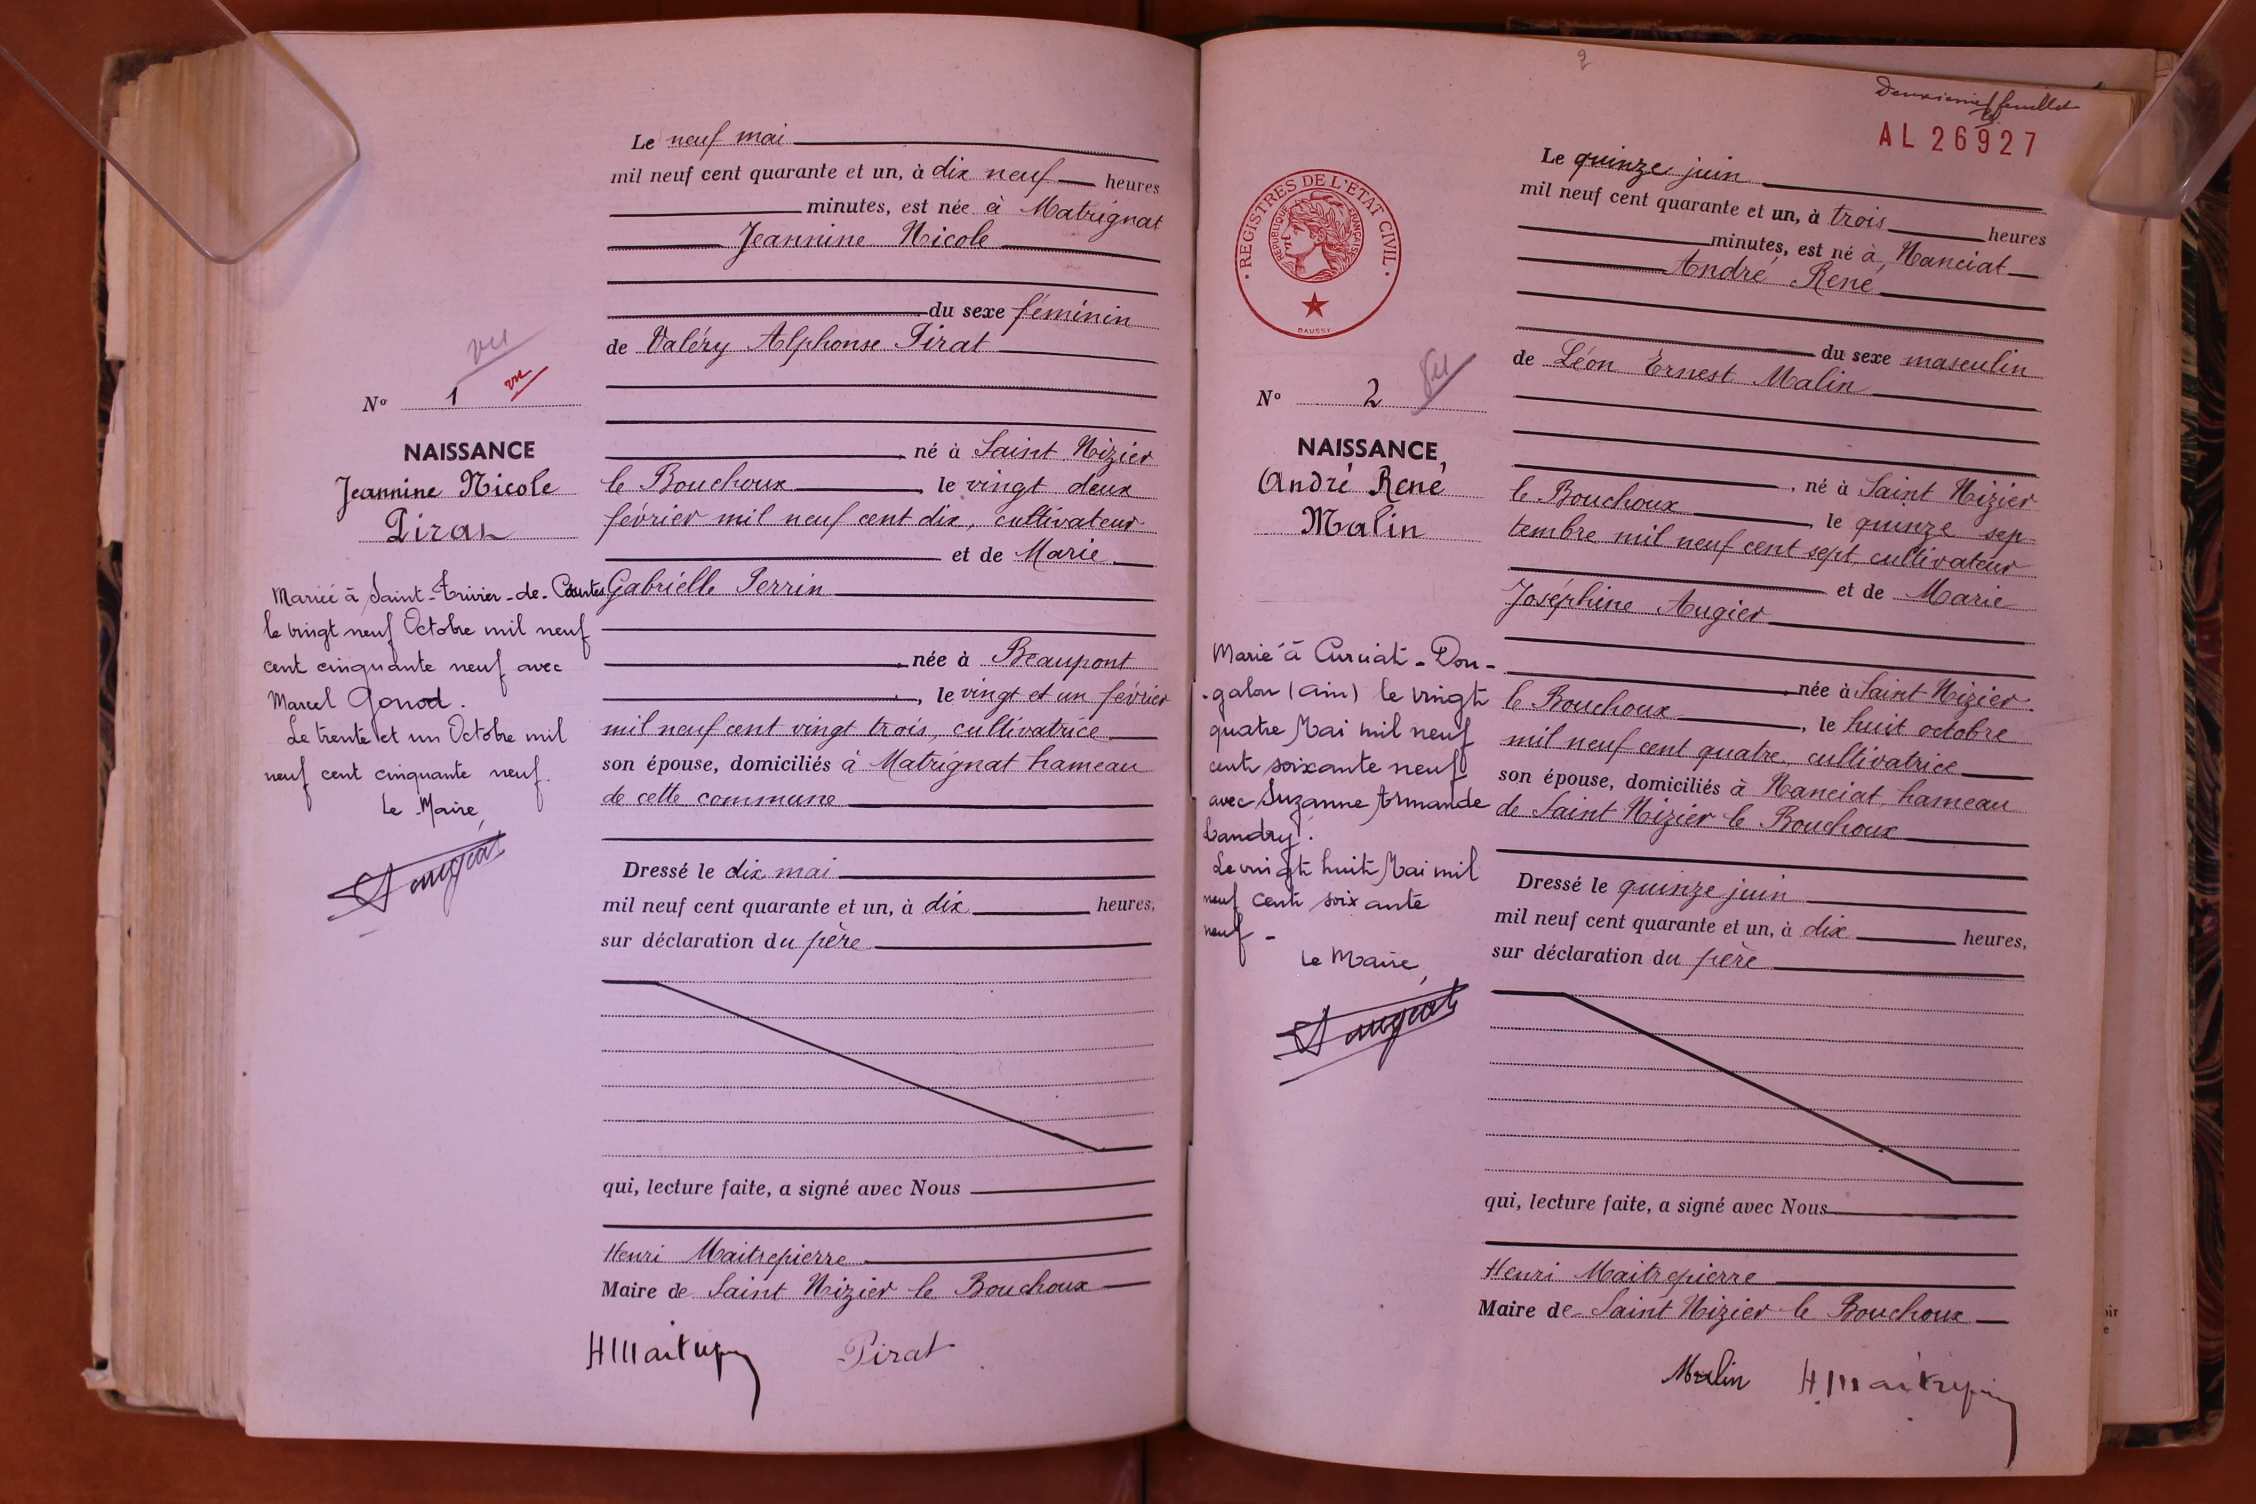 Le neuf mai
mil neuf cent quarante et un, à dix neuf heures
minutes, est née à Matrignat
Jeannine Nicole
du sexe féminin
de Valéry Alphonse Pirat
né à Saint Nizier
le Bouchoux, le vingt deux
février mil neuf cent dix, cultivateur
et de Marie
Gabrielle Perrin
née à Beaupont
, le vingt et un février
mil neuf cent vingt trois, cultivatrice
son épouse, domiciliés à Matrignat hameau
de cette commune
Dressé le dix mai
mil neuf cent quarante et un, à dix heures,
sur déclaration du père
qui, lecture faite, a signé avec Nous
Henri Maitrepierre
Maire de Saint Nizier le Bouchoux
Pirat
vu
vu
No 1
NAISSANCE
Jeannine Nicole
Pirat
Mariée à Saint-Trivier-de-Courtes
le vingt neuf Octobre mil neuf
cent cinquante neuf avec
Marcel Gonod.
Le trente et un Octobre mil
neuf cent cinquante neuf.
Le Maire,
2
Deuxième feuillet
AL 26927
REGISTRES DE L'ETAT CIVIL
REPUBLIQUE FRANÇAISE
DAUSSY
Le quinze juin
mil neuf cent quarante et un, à trois heures
minutes, est né à Nanciat
André René
du sexe masculin
de Léon Ernest Malin
, né à Saint Nizier
le Bouchoux, le quinze sep
tembre mil neuf cent sept, cultivateur
et de Marie
Joséphine Augier
née à Saint Nizier
le Bouchoux, le huit octobre
mil neuf cent quatre, cultivatrice
son épouse, domiciliés à Nanciat, hameau
de Saint Nizier le Bouchoux
Dressé le quinze juin
mil neuf cent quarante et un, à dix heures,
sur déclaration du père
qui, lecture faite, a signé avec Nous
Henri Maitrepierre
Maire de Saint Nizier le Bouchoux
Malin
No 2
vu
NAISSANCE
André René
Malin
Marié à Curciat-Don-
-galon (Ain) le vingt
quatre Mai mil neuf
cent soixante neuf
avec Suzanne Armande
Landry.
Le vingt huit Mai mil
neuf cent soixante
neuf -
Le Maire,